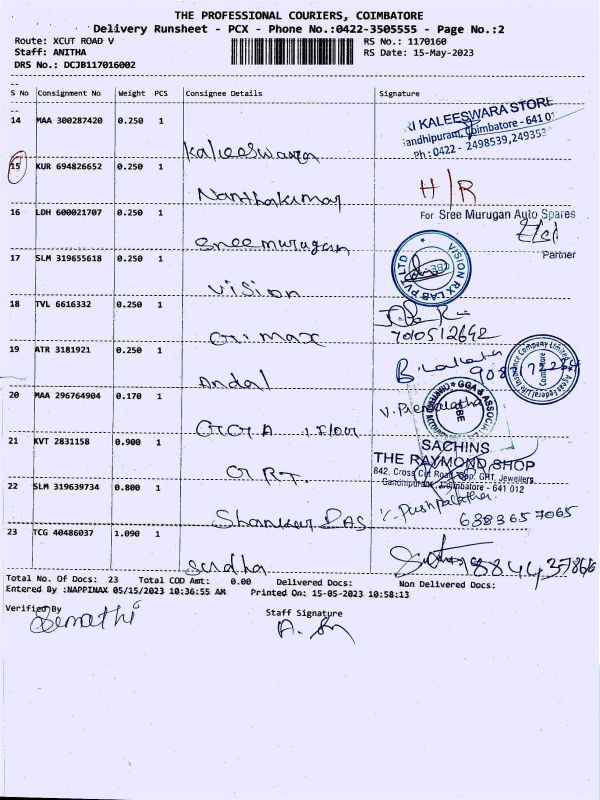 THE PROFESSIONAL COURIERS, COIMBATORE
Delivery Runsheet - PCX - Phone No.:0422-3505555 - Page No.:2
Route: XCUT ROAD V RS No.: 1170160
Staff: ANITHA RS Date: 15-May-2023
DRS No.: DCJB117016002
S No Consignment No Weight PCS Consignee Details Signature
14 MAA 300287420 0.250 1 Kaleeswara
RI KALEESWARA STORE
Gandhipuram, Coimbatore - 641 01
Ph : 0422 - 2498539, 249353
15 KUR 694826652 0.250 1 Nanthakumar H/R
16 LDH 600021707 0.250 1 Sreemurugan
For Sree Murugan Auto Spares
Partner
17 SLM 319655618 0.250 1 Vision
VISION RX LAB PVT LTD
CBE
18 TVL 6616332 0.250 1
7010512692
19 ATR 3181921 0.250 1 Andal
Ageas Federal Life Insurance Company Limited
Coimbatore
20 MAA 296764904 0.170 1 GGA 1 Floor
GGA & ASSOCI
CBE
21 KVT 2831158 0.900 1 GRT.
SACHINS
THE RAYMOND SHOP
842, Cross Cut Road, Opp. GRT. Jewellers
Gandhipuram, Coimbatore - 641 012
22 SLM 319639734 0.800 1 Shankar DAS
V. Pushpalatha
6383657065
23 TCG 40486037 1.090 1 Sudha
Total No. Of Docs: 23 Total COD Amt: 0.00 Delivered Docs: Non Delivered Docs:
Entered By :NAPPINAX 05/15/2023 10:36:55 AM Printed On: 15-05-2023 10:58:13
Verified By Staff Signature